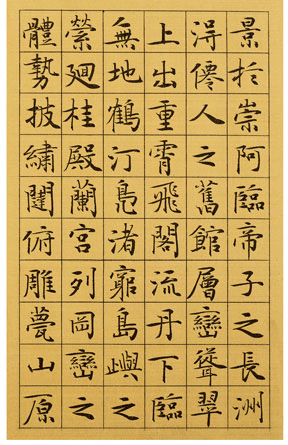 景於崇阿臨帝子之長洲
得僊人之舊館層巒聳翠
上出重霄飛閣流丹下臨
無地鶴汀鳧渚窮島嶼之
縈廻桂殿蘭宮列岡巒之
體勢披繡闥俯雕甍山原